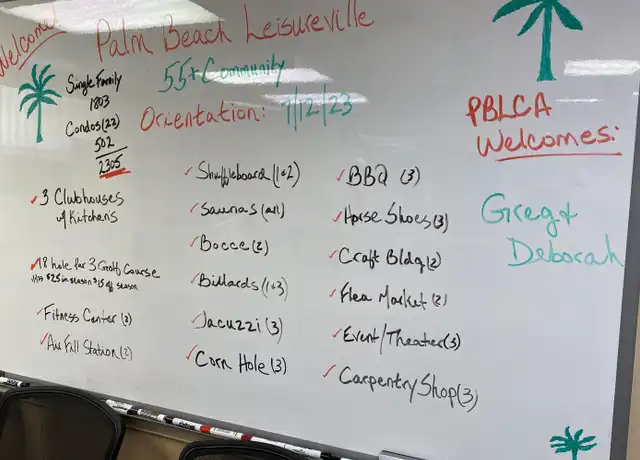 Welcome!
Palm Beach Leisureville
55+ Community
Orientation: 7/12/23
Single Family
1803
Condos (22)
502
2305
3 Clubhouses
w/ Kitchens
18 hole par 3 Golf Course
$25 in season $15 off season
Fitness Center (2)
Air Fill Station (2)
Shuffleboard (1+2)
Saunas (all)
Bocce (2)
Billards (1+3)
Jacuzzi (3)
Corn Hole (3)
BBQ (3)
Horse Shoes (3)
Craft Bldg (2)
Flea Market (2)
Event/Theater (3)
Carpentry Shop (3)
PBLCA
Welcomes:
Greg +
Deborah